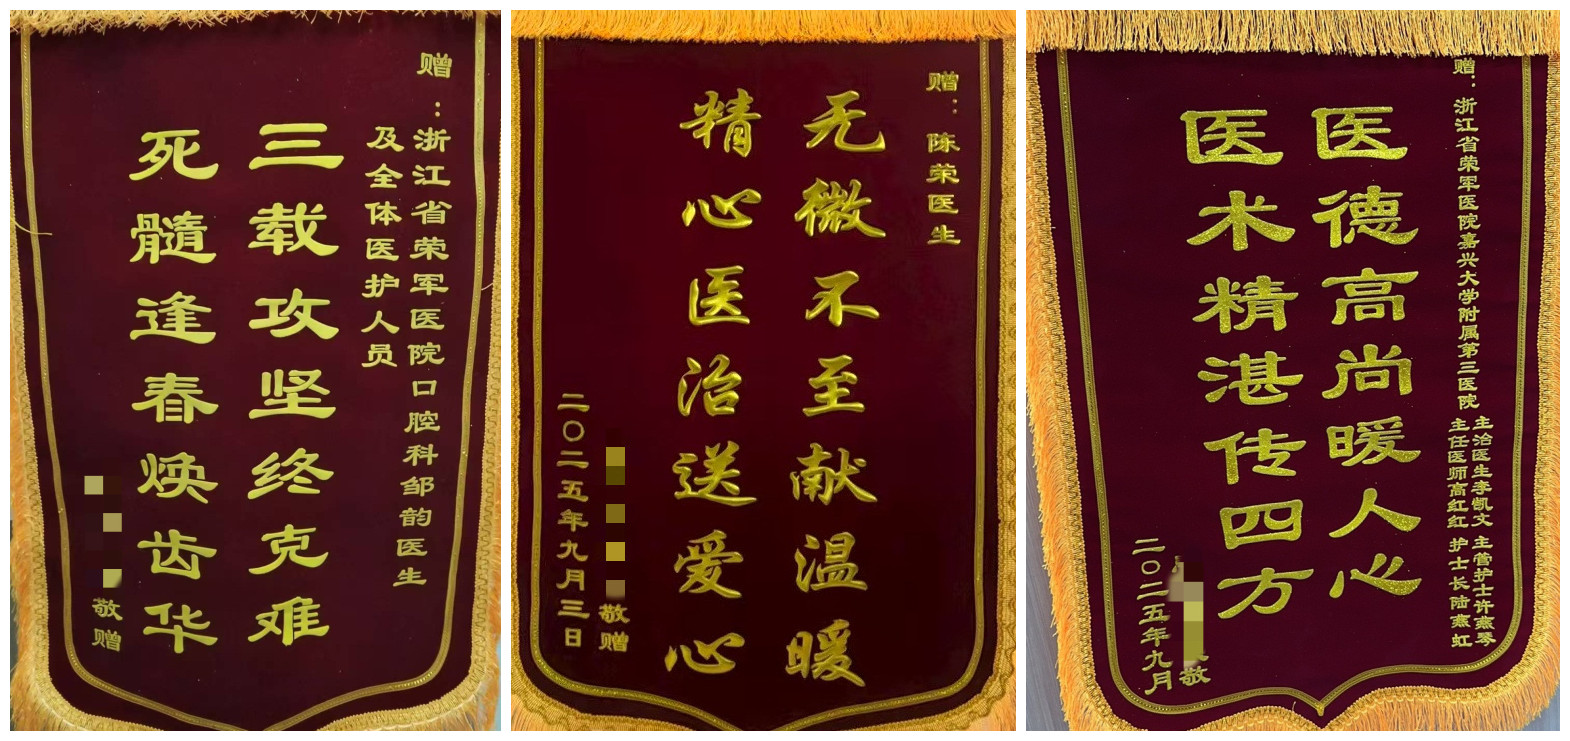 赠：浙江省荣军医院口腔科邹韵医生
及全体医护人员
三载攻坚终克难
死髓逢春焕齿华
敬赠
赠：陈荣医生
无微不至献温暖
精心医治送爱心
敬赠
二〇二五年九月三日
赠：浙江省荣军医院嘉兴大学附属第三医院
主治医生李凯文 主管护士许燕琴
主任医师高红红 护士长陆燕虹
医德高尚暖人心
医术精湛传四方
敬
二〇二五年九月